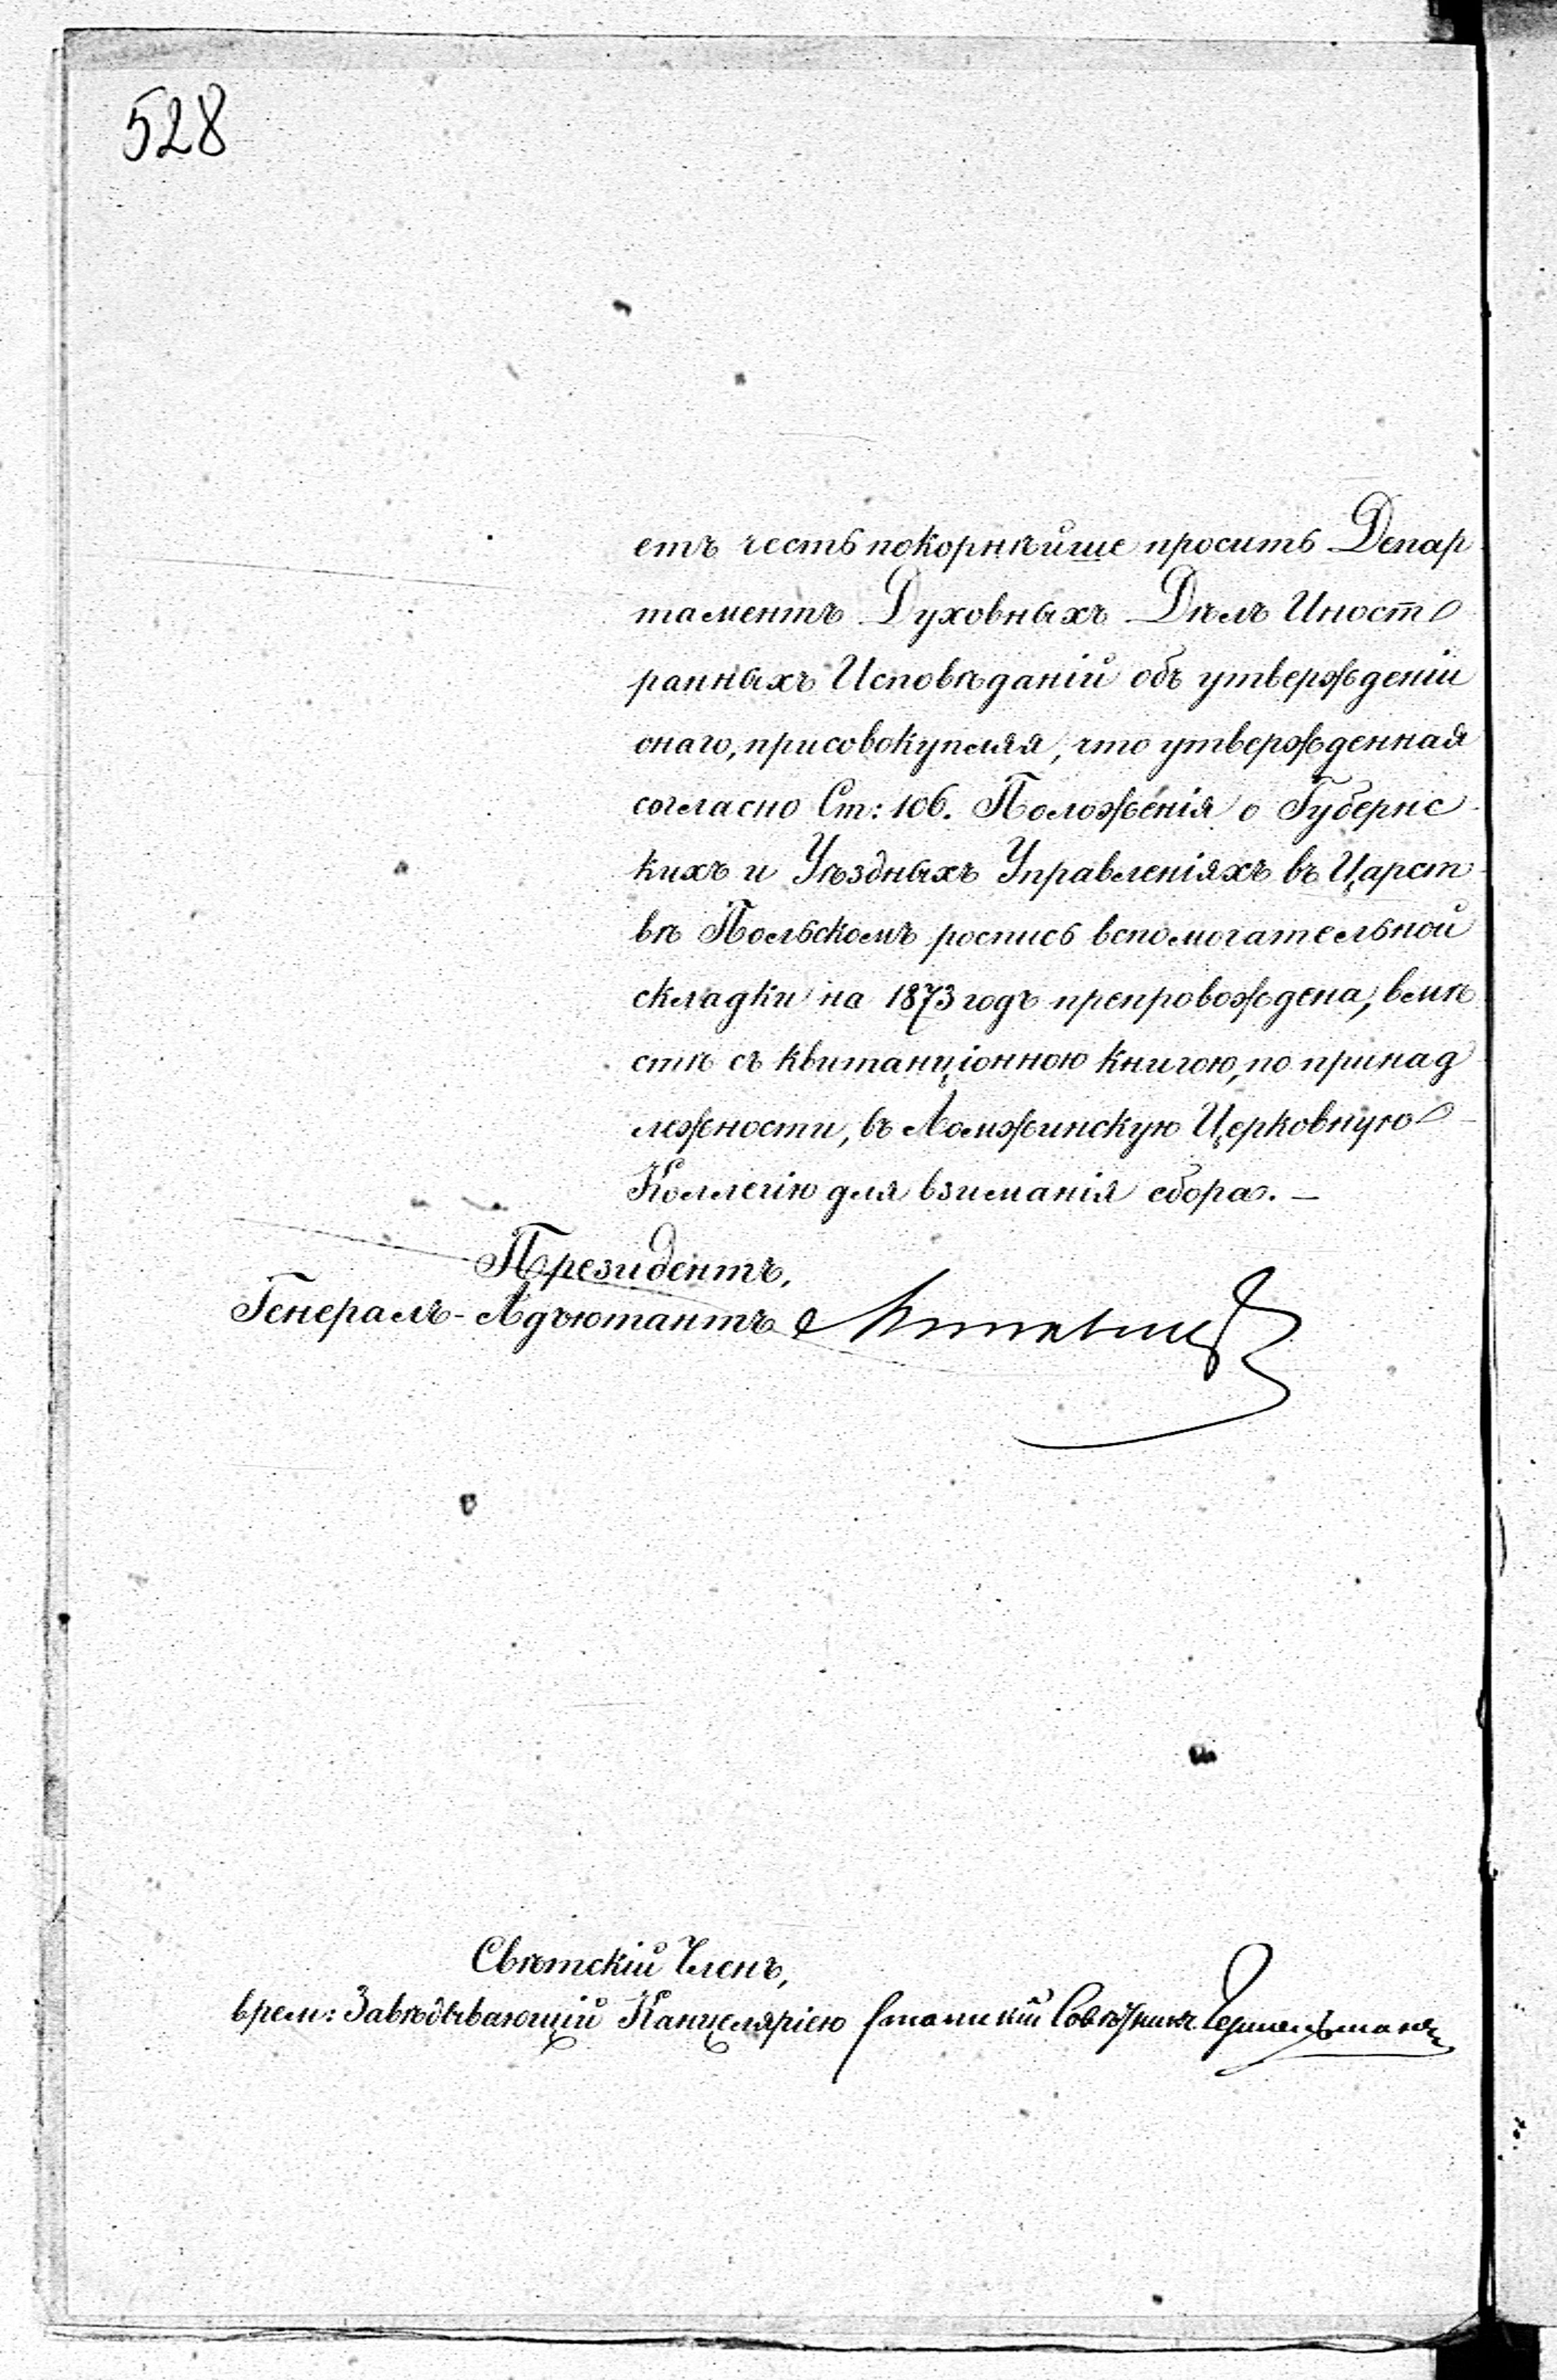 528
етъ честь покорнѣйше просить Депар
таментъ Духовныхъ Дѣлъ Иност
ранныхъ Исповѣданій объ утвержденіи
онаго, присовокупляя, что утвержденная
согласно Ст: 106. Положенія о Губернс
кихъ и Уѣздныхъ Управленіяхъ въ Царст
вѣ Польскомъ роспись вспомогательной
складки на 1873 годъ препровождена, вмѣ
стѣ съ квитанціонною книгою, по принад
лежности, въ Ломжинскую Церковную
Коллегію для взиманія сбора. —
Президентъ,
Генералъ-Адъютантъ
Свѣтскій Членъ,
врем: Завѣдывающій Канцеляріею Статскій Совѣтникъ